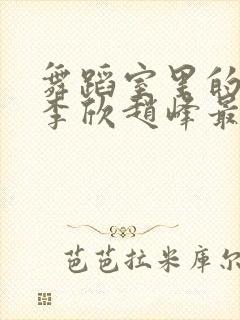 舞蹈室里的
李欣赵峰最
芭芭拉米库尔